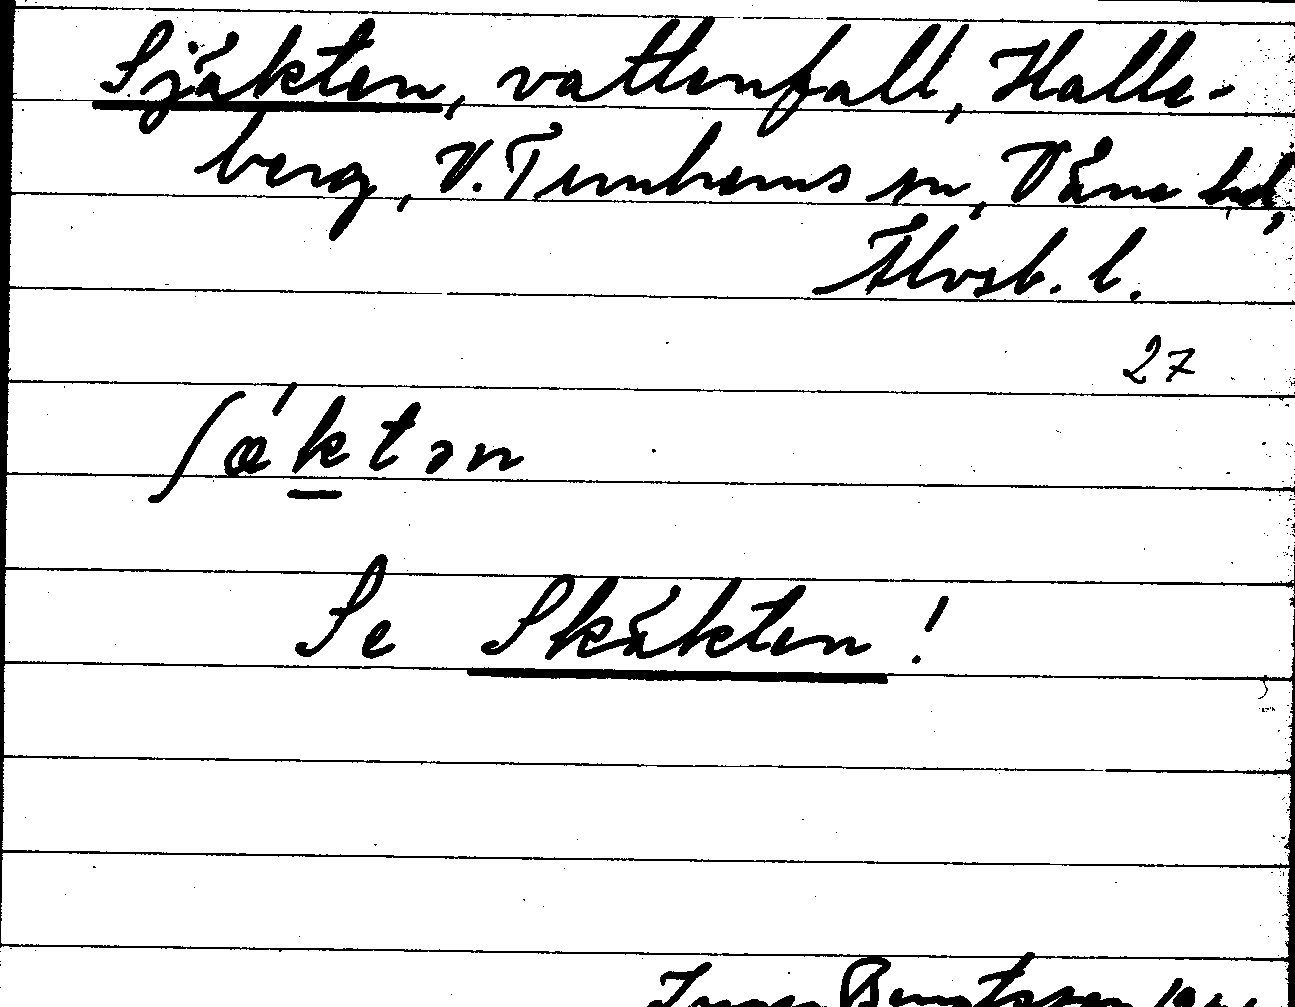 Sjäkten, vattenfall, Halle-
berg, V. Tunhems sn, Väne hd,
Älvsb. l.
27
ʃæ̍ktən
Se Skäkten!
Bengtsson